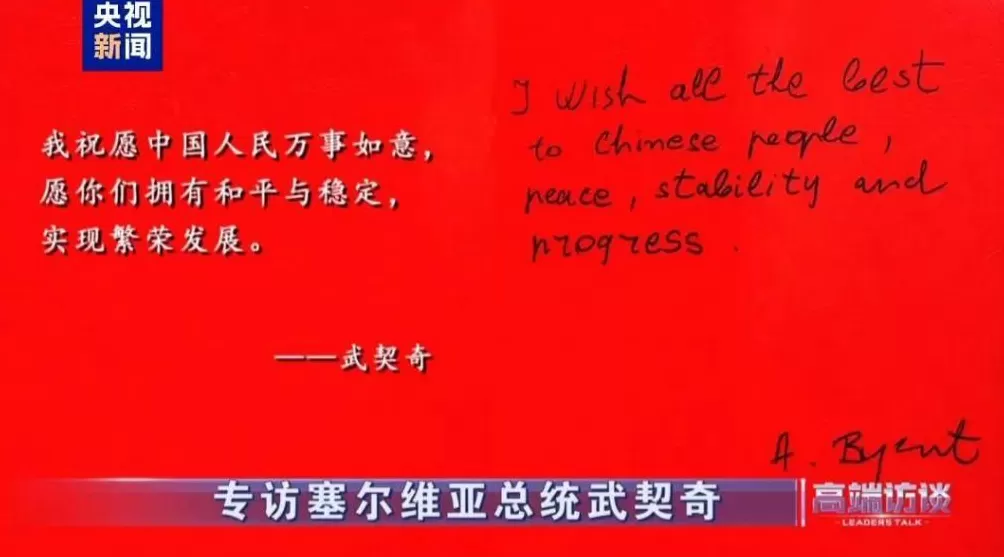 央视
新闻
我祝愿中国人民万事如意，
愿你们拥有和平与稳定，
实现繁荣发展。
——武契奇
I wish all the best
to Chinese people,
peace, stability and
progress.
А. Вучић
专访塞尔维亚总统武契奇
高端访谈
LEADERS TALK